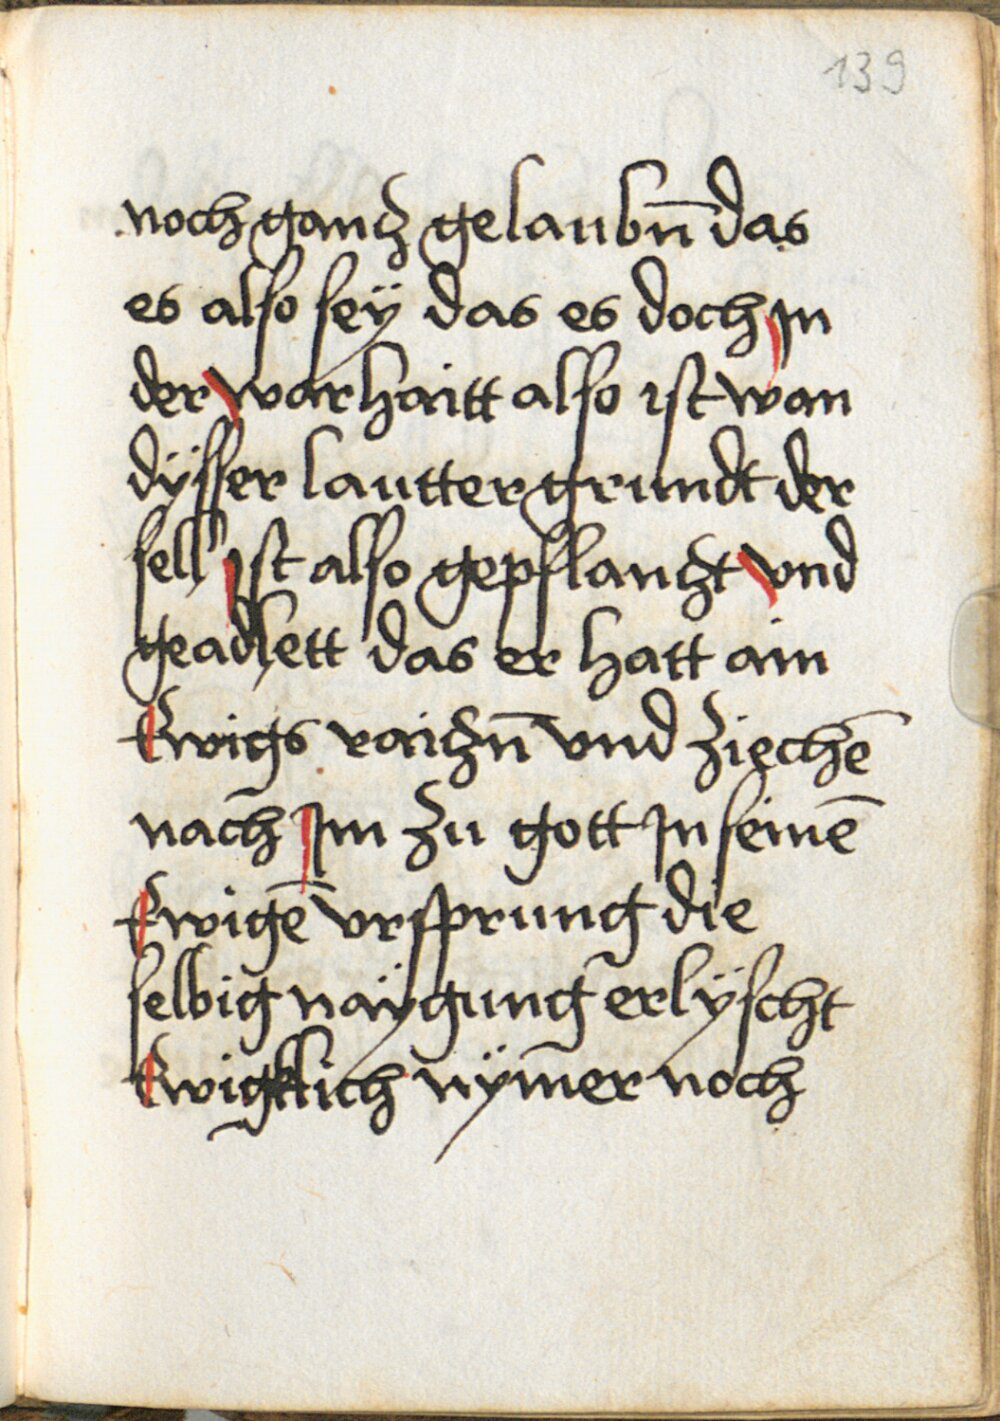 139
noch gantz gelaubn̄ das
es also seÿ das es doch jn
der warhaitt also ist wan
dÿsser lautter grundt der
sell ist also gepflantzt vnd
geadlett das er hatt ain
Ewigs raitzn̄ vnd ziechē
nach Im zu gott jn seinē
Ewigē vrsprung die
selbig naÿgung erlÿscht
Ewigklich nÿm̄er noch